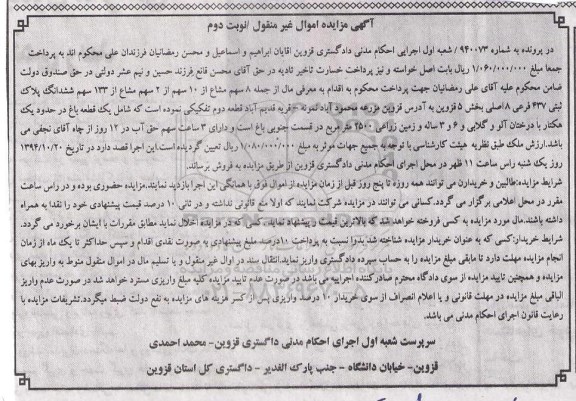 آگهی مزایده اموال غیر منقول /نوبت دوم
در پرونده به شماره ۹۴۰۰۷۳/ شعبه اول اجرایی احکام مدنی دادگستری قزوین اقایان ابراهیم و اسماعیل و محسن رمضانیان فرزندان علی محکوم اند به پرداخت
جمعا مبلغ ۱/۰۶۰/۰۰۰/۰۰۰ ریال بابت اصل خواسته و نیز پرداخت خسارت تاخیر تادیه در حق آقای محسن قانع فرزند حسین و نیم عشر دولتی در حق صندوق دولت
ضامن محکوم علیه آقای علی رمضانیان جهت پرداخت محکوم به اقدام به معرفی مال از جمله ۸ سهم مشاع از ۱۰ سهم از ۲ سهم مشاع از ۱۳۳ سهم ششدانگ پلاک
ثبتی ۴۳۷ فرعی ۸ اصلی بخش ۵ قزوین به آدرس قزوین مزرعه محمود آباد نمونه -قریه قدیم آباد قطعه دوم تفکیکی نموده است که شامل یک قطعه باغ در حدود یک
هکتار با درختان آلو و گلابی و ۶ و ۳ ساله و زمین زراعی ۲۵۰۰ متر مربع در قسمت جنوبی باغ است و دارای ۳ ساعت سهم حق آب در ۱۲ روز از چاه آقای نجفی می
باشد.ارزش ملک طبق نظریه هیئت کارشناسی با توجه به جمیع جهات موثر به مبلغ ۱/۰۸۰/۰۰۰/۰۰۰ ریال تعیین گردیده است.این اجرا قصد دارد در تاریخ ۱۳۹۴/۱۰/۲۰
روز یک شنبه راس ساعت ۱۱ ظهر در محل اجرای احکام مدنی دادگستری قزوین از طریق مزایده به فروش برساند.
شرایط مزایده:طالبین و خریدارن می توانند همه روزه تا پنج روز قبل از زمان مزایده از اموال فوق با همانگی این اجرا بازدید نمایند.مزایده حضوری بوده و در راس ساعت
مقرر در محل اعلامی برگزار می گردد.کسانی می توانند در مزایده شرکت نمایند که اولا منع قانونی نداشته و در ثانی ۱۰ درصد قیمت پیشنهادی خود را نقدا به همراه
داشته باشند.مال مورد مزایده به کسی فروخته خواهد شد که بالاترین قیمت را پیشنهاد نماید.کسی که در مزایده اخلال نماید مطابق مقررات با ایشان برخورد می گردد.
شرایط خریدار:کسی که به عنوان خریدار مزایده شناخته شد بدوا نسبت به پرداخت ۱۰درصد مبلغ پیشنهادی به صورت نقدی اقدام و سپس حداکثر تا یک ماه از زمان
انجام مزایده مهلت دارد تا مابقی مبلغ مزایده را به حساب سپرده دادگستری واریز نماید.انتقال سند در اول غیر منقول و یا تسلیم مال در اموال منقول منوط به واریز بهای
مزایده و همچنین تایید مزایده از سوی دادگاه محترم صادر کننده اجراییه می باشد در صورت عدم تایید مزایده کلیه مبلغ واریزی مسترد خواهد شد در صورت عدم واریز
الباقی مبلغ مزایده در مهلت قانونی و یا اعلام انصراف از سوی خریدار ۱۰ درصد واریزی پس از کسر هزینه های مزایده به نفع دولت ضبط میگردد.تشریفات مزایده با
رعایت قانون اجرای احکام مدنی می باشد.
سرپرست شعبه اول اجرای احکام مدنی داگستری قزوین- محمد احمدی
قزوین- خیابان دانشگاه - جنب پارک الغدیر - دادگستری کل استان قزوین